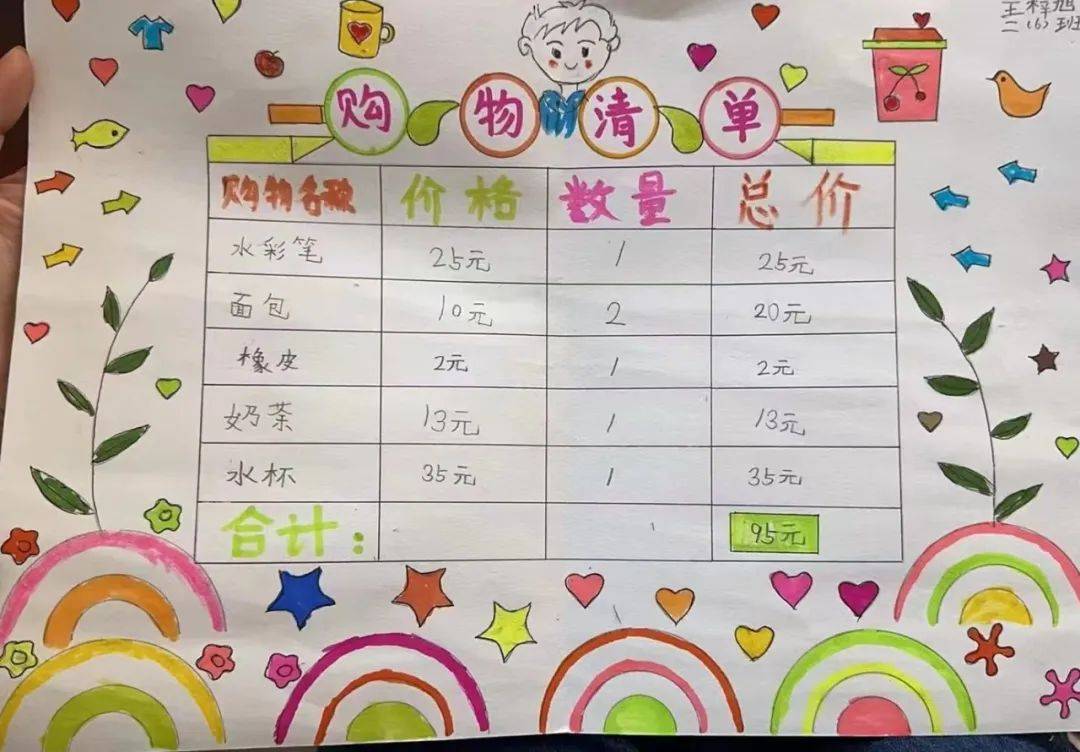 王梓旭
二(6)班
购物清单
购物名称 价格 数量 总价
水彩笔 25元 1 25元
面包 10元 2 20元
橡皮 2元 1 2元
奶茶 13元 1 13元
水杯 35元 1 35元
合计: 95元